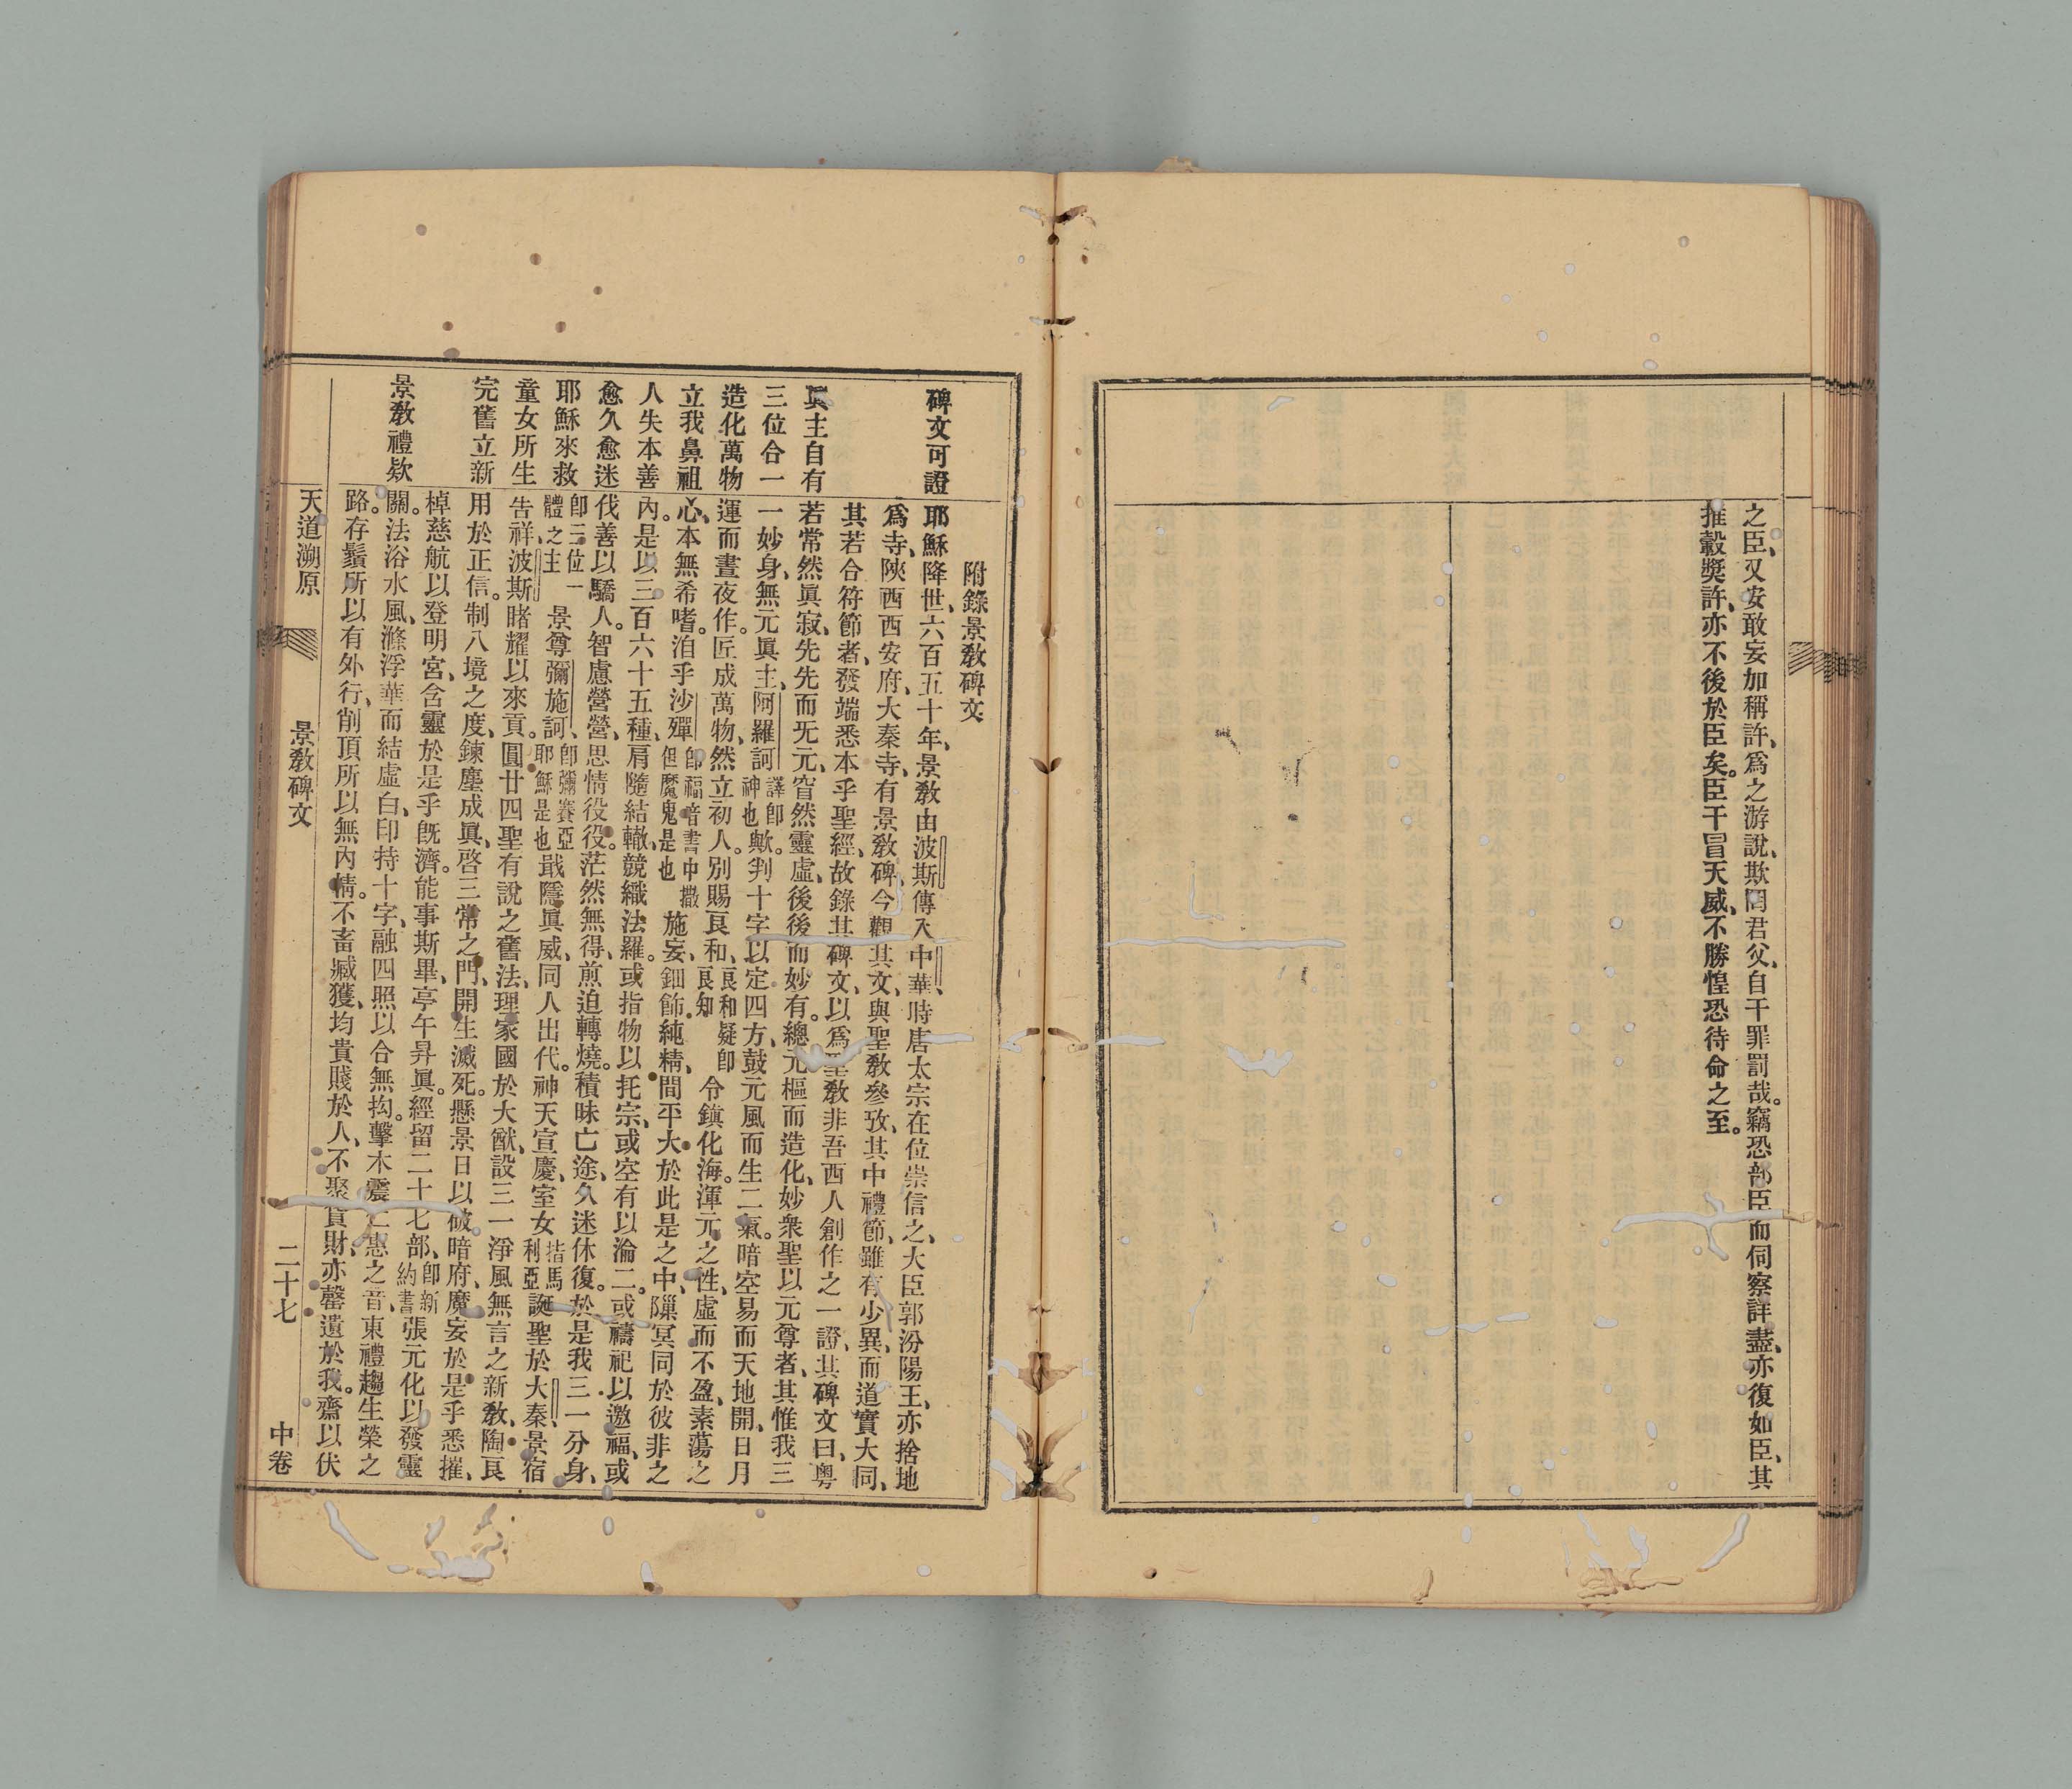 之臣、又安敢妄加稱許、爲之游說、欺罔君父、自干罪罰哉。竊恐部臣而伺察詳盡、亦復如臣、其
推轂獎許、亦不後於臣矣。臣干冒天威、不勝惶恐待命之至。
附錄景敎碑文
碑文可證
耶穌降世、六百五十年、景敎由波斯傳入中華、時唐太宗在位崇信之、大臣郭汾陽王、亦捨地
爲寺、陝西西安府、大秦寺、有景敎碑、今觀其文、與聖敎參攷、其中禮節、雖有少異、而道實大同、
其若合符節者、發端悉本乎聖經、故錄其碑文、以爲聖敎非吾西人創作之一證、其碑文曰、粤
眞主自有
若常然眞寂、先先而无元、窅然靈虛、後後而妙有。總元樞而造化、妙衆聖以元尊者、其惟我三
三位合一
一妙身、無元眞主、阿羅訶譯卽神也歟。判十字以定四方、鼓元風而生二氣。暗空易而天地開、日月
造化萬物
運而晝夜作。匠成萬物、然立初人。別賜良和、良和疑卽良知令鎭化海。渾元之性、虛而不盈、素蕩之
立我鼻祖
心、本無希嗜。洎乎沙殫卽福音書中撒但魔鬼是也施妄、鈿飾純精、間平大於此是之中、隟冥同於彼非之
人失本善
內。是以三百六十五種、肩隨結轍、競織法羅。或指物以托宗、或空有以淪二。或禱祀以邀福、或
愈久愈迷
伐善以驕人。智慮營營、思情役役。茫然無得、煎迫轉燒。積昧亡途、久迷休復。於是我三一分身、
耶穌來救
卽三位一體之主景尊彌施訶、卽彌賽亞耶穌是也戢隱眞威、同人出代。神天宣慶、室女指馬利亞誕聖於大秦、景宿
童女所生
告祥、波斯睹耀以來貢。圓廿四聖有說之舊法、理家國於大猷、設三一淨風無言之新敎、陶良
完舊立新
用於正信。制八境之度、鍊塵成眞、啓三常之門、開生滅死。懸景日以破暗府、魔妄於是乎悉摧、
棹慈航以登明宮、含靈於是乎旣濟。能事斯畢、亭午昇眞。經留二十七部、卽新約書張元化以發靈
景敎禮欵
關。法浴水風、滌浮華而結虛白、印持十字、融四照以合無拘。擊木震仁惠之音、東禮趨生榮之
路。存鬚所以有外行、削頂所以無內情。不畜臧獲、均貴賤於人、不聚貨財、亦罄遺於我。齋以伏
天道溯原 景敎碑文 二十七 中卷